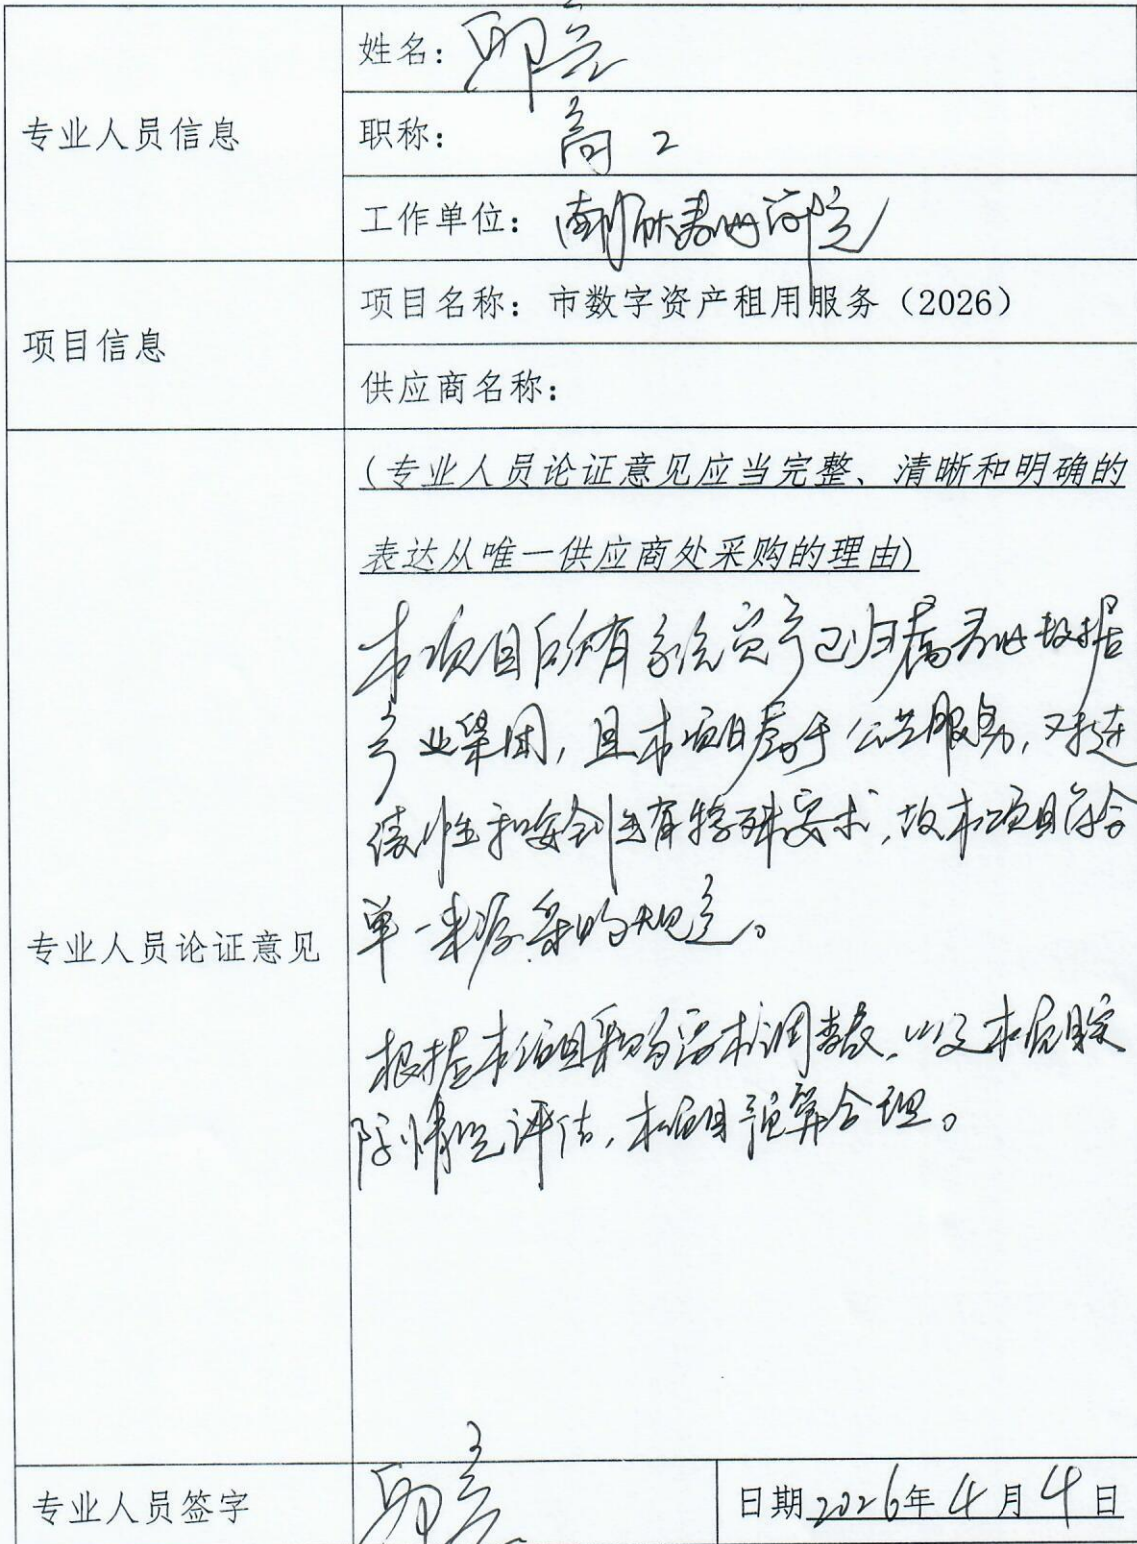 专业人员信息
姓名：
职称： 高工
工作单位：
项目信息
项目名称：市数字资产租用服务（2026）
供应商名称：
专业人员论证意见
(专业人员论证意见应当完整、清晰和明确的
表达从唯一供应商处采购的理由)
本项目所有系统资产已归属 数据
产业集团，且本项目属于公共服务，对连
续性和安全性有特殊要求，故本项目符合
单一来源采购规定。
根据本项目采购需求调查表，以及本项目实
际情况评估，本项目预算合理。
专业人员签字
日期2026年4月4日